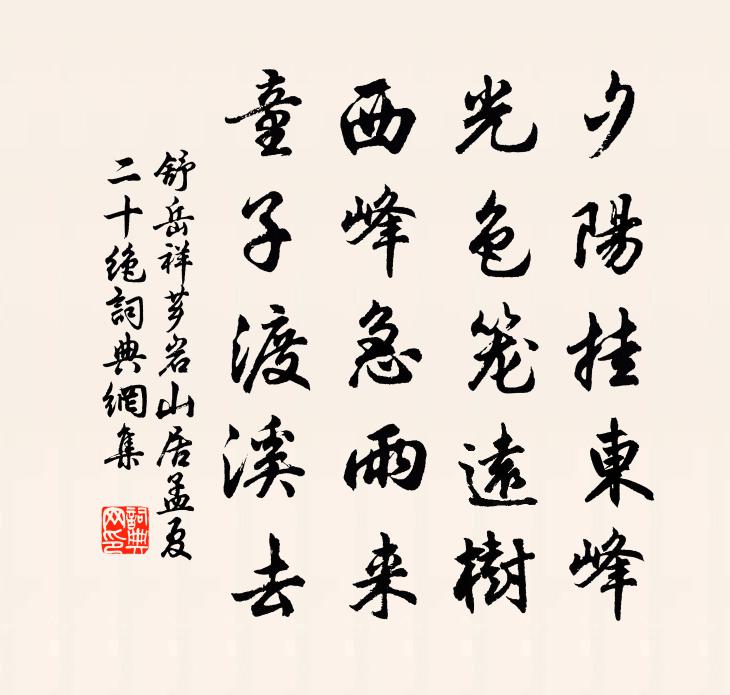 夕陽挂東峰
光色笼遠樹
西峰急雨来
童子渡溪去
舒岳祥芗岩山居孟夏
二十绝詞典網集
詞典网印